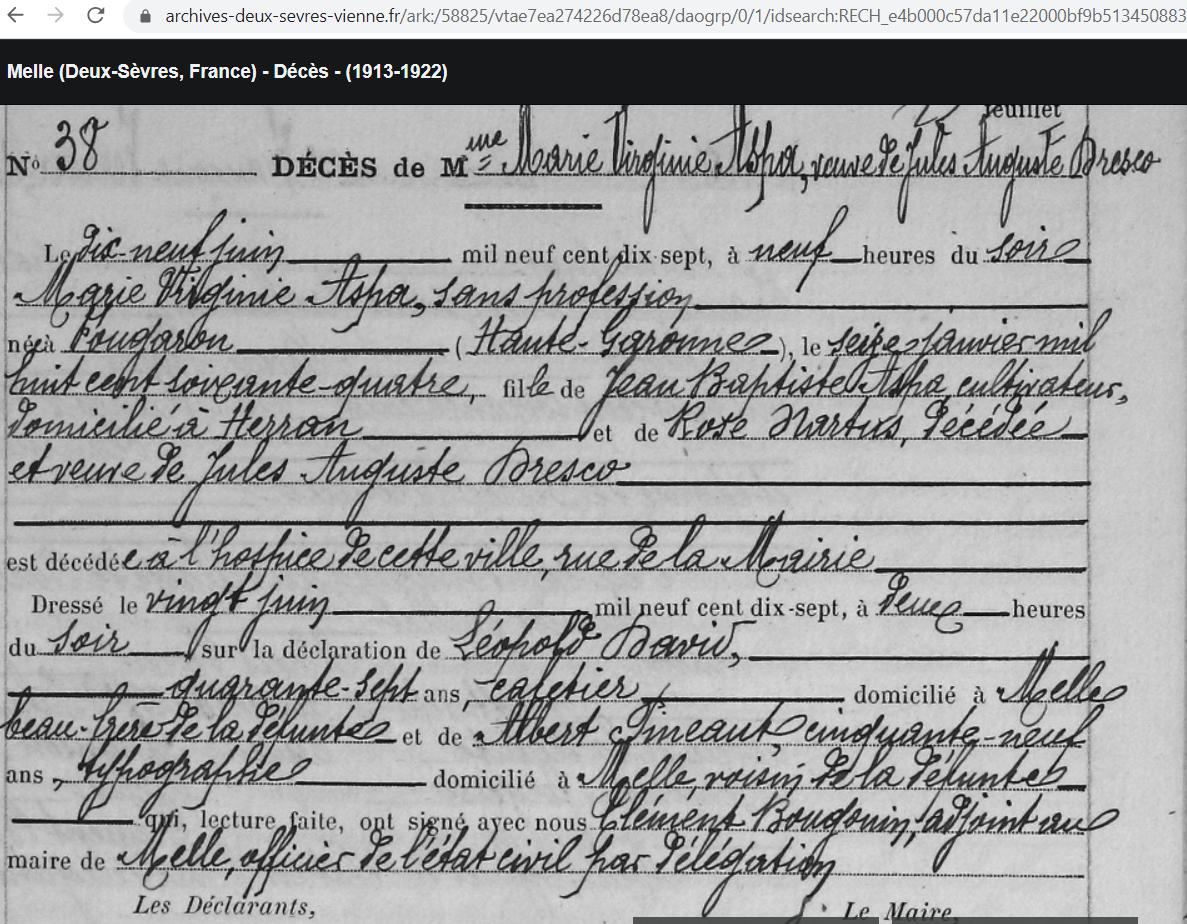 archives-deux-sevres-vienne.fr/ark:/58825/vtae7ea274226d78ea8/daogrp/0/1/idsearch:RECH_e4b000c57da11e22000bf9b513450883
Melle (Deux-Sèvres, France) - Décès - (1913-1922)
feuillet
No 38 DÉCÈS de Mme Marie Virginie Aspa, veuve de Jules Auguste Dresco
Le dix-neuf juin mil neuf cent dix-sept, à neuf heures du soir
Marie Virginie Aspa, sans profession
née à Fougaron (Haute-Garonne), le seize janvier mil
huit cent soixante-quatre, fille de Jean Baptiste Aspa, cultivateur,
domicilié à Herran et de Rose Martus, décédée
et veuve de Jules Auguste Dresco
est décédée à l'hospice de cette ville, rue de la Mairie
Dressé le vingt juin mil neuf cent dix-sept, à deux heures
du soir sur la déclaration de Léopold David,
quarante-sept ans, cafetier, domicilié à Melle
beau-frère de la défunte et de Albert Fineaut, cinquante-neuf
ans, typographe domicilié à Melle, voisin de la défunte
qui, lecture faite, ont signé avec nous Clément Bougouin, adjoint au
maire de Melle, officier de l'état civil par délégation
Les Déclarants, Le Maire,